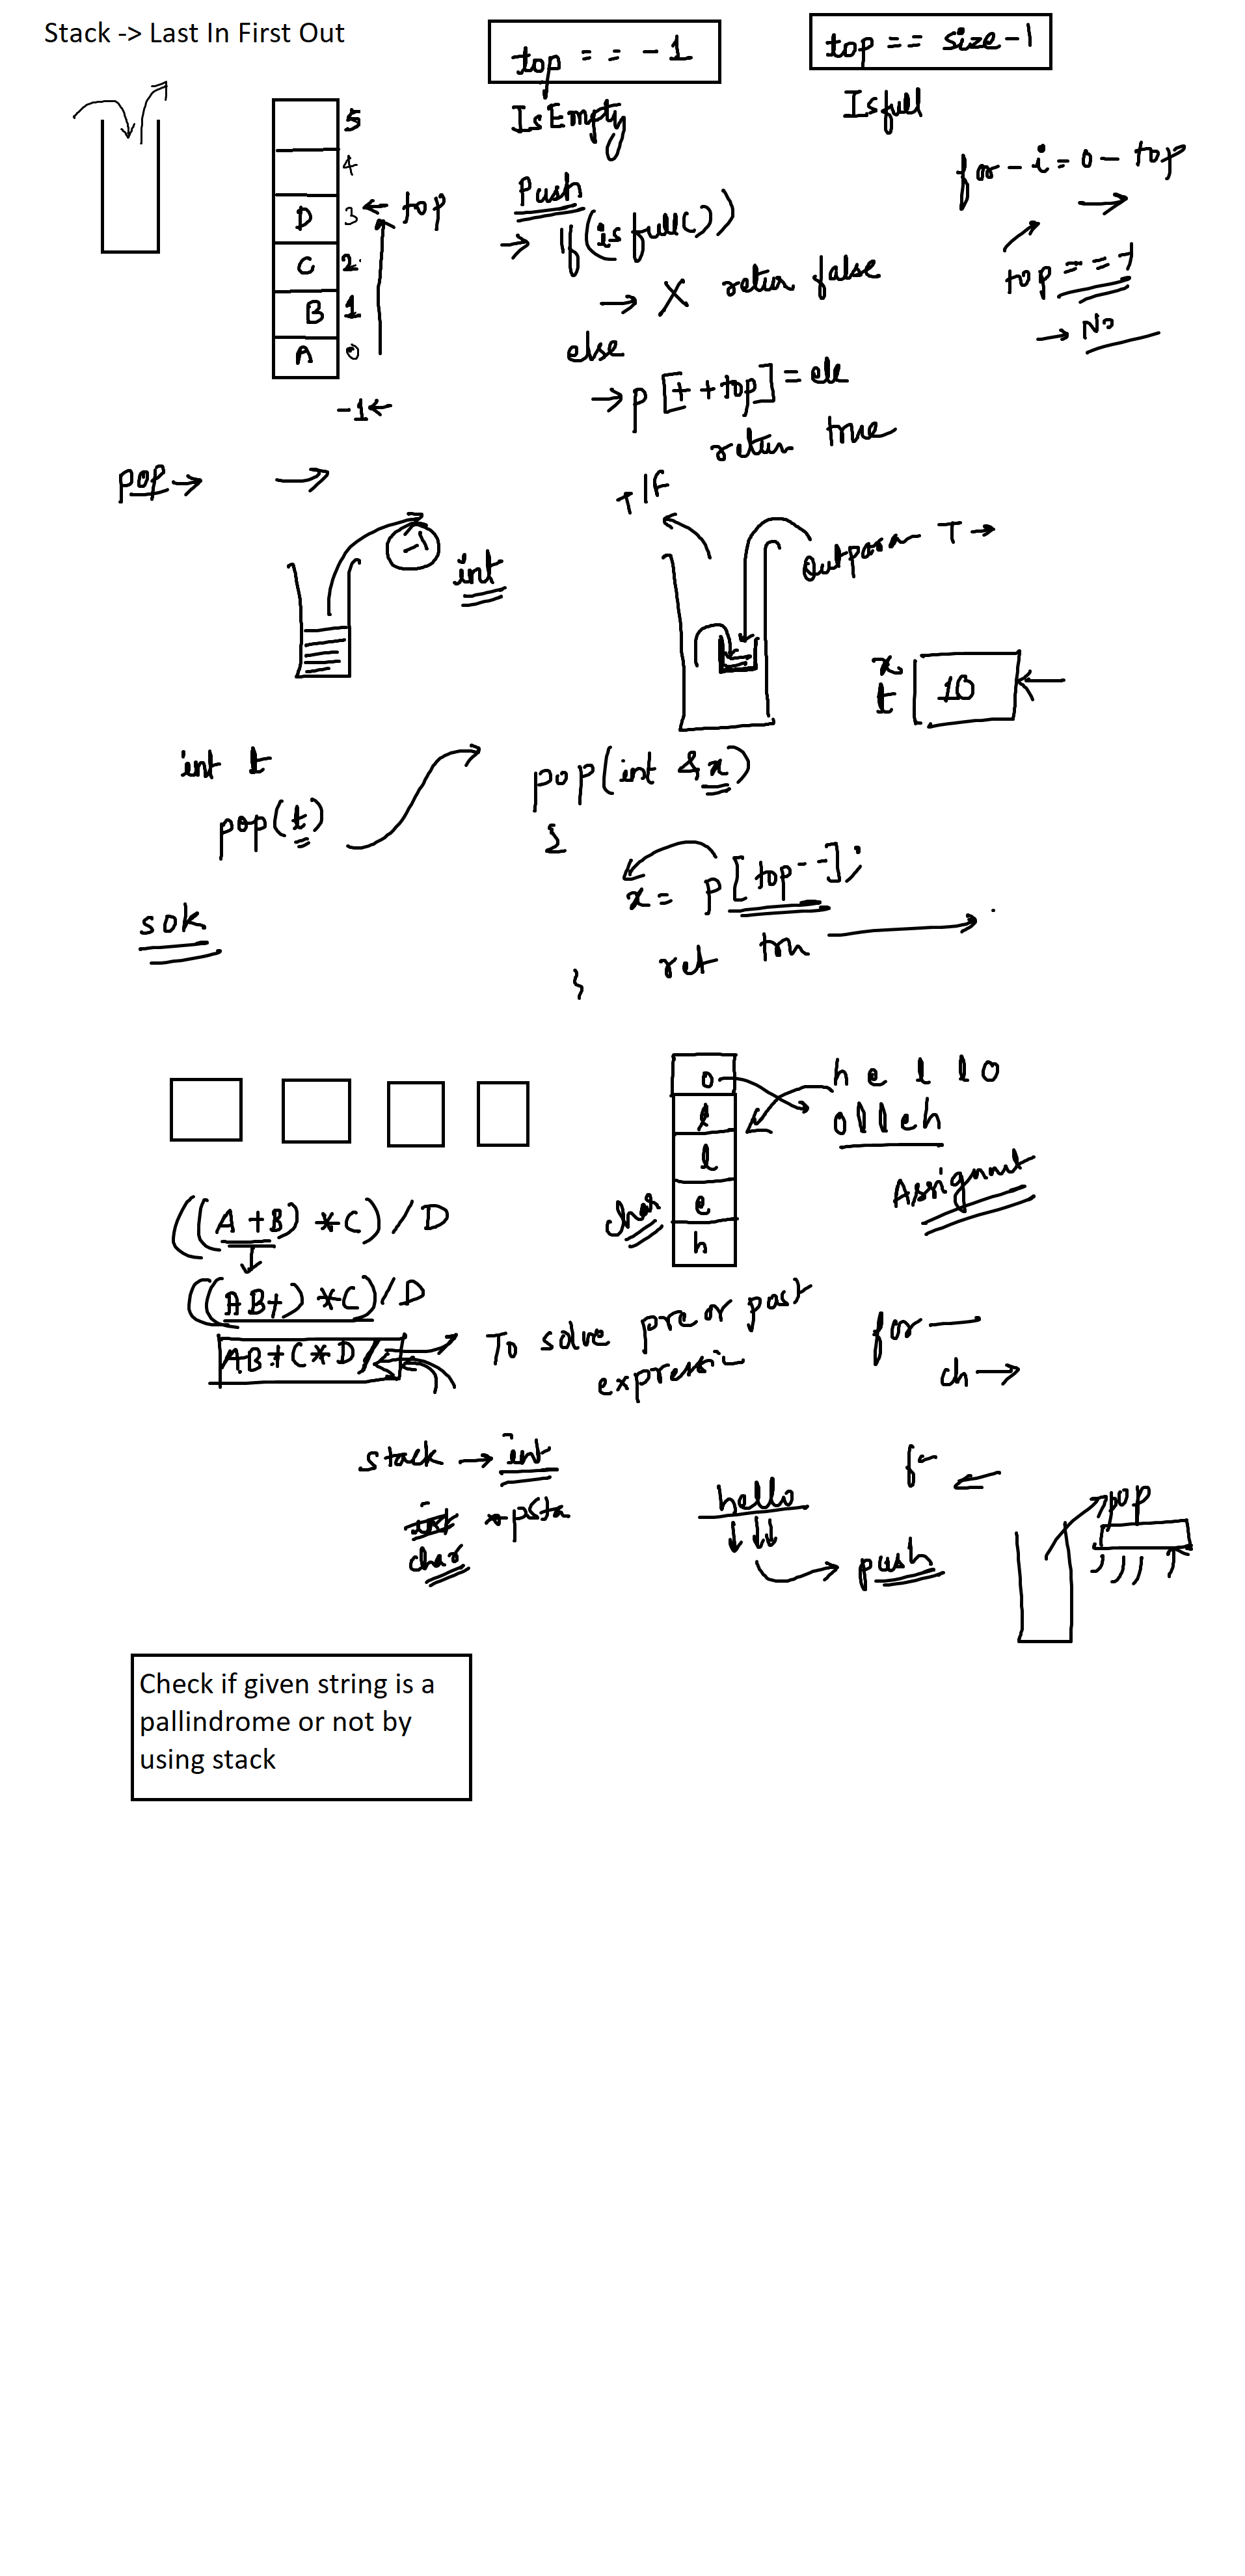 Stack -> Last In First Out
top == -1
IsEmpty
top == size-1
Isfull
5
4
D 3 ← top
C 2
B 1
A 0
-1 ←
Push
→ If(isfull())
→ X return false
else
→ p[++top] = ele
return true
for - i = 0 - top
→
top == -1
→ No
pop → →
-1
int
T/F
Outparam T →
x
t
10
int t
pop(t)
pop(int &x)
{
x = p[top--];
ret tru
}
sok
o
l
l
e
h
char
h e l l o
olleh
Assignmnt
((A+B)*C)/D
((AB+)*C)/D
AB+C*D/
To solve pre or post
expressin
for —
ch →
stack → int
int *psta
char
hello
push
pop
Check if given string is a
pallindrome or not by
using stack